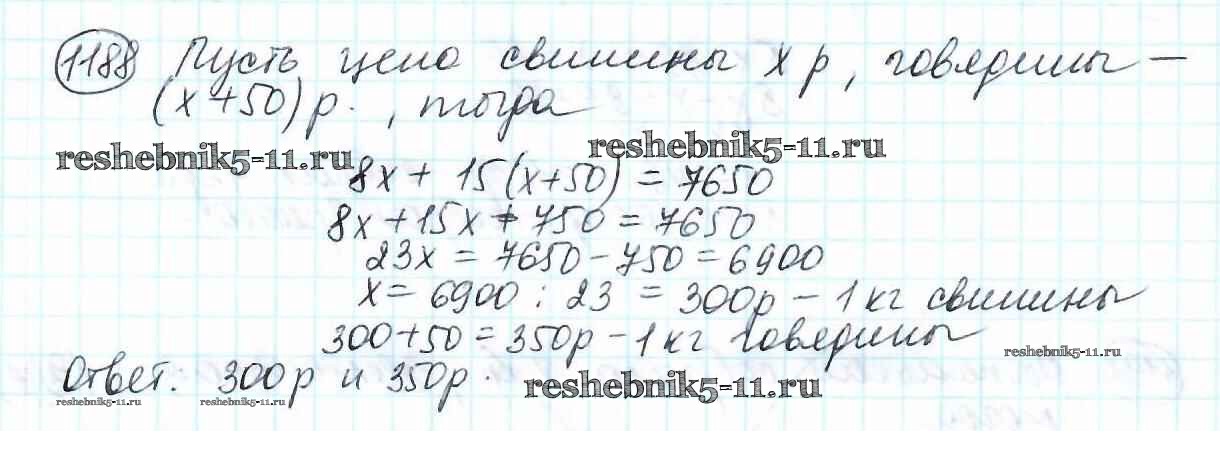 1188 Пусть цена свинины x р, говядины —
(x+50) р., тогда
reshebnik5-11.ru reshebnik5-11.ru
8x + 15(x+50) = 7650
8x+15x+750=7650
23x = 7650-750=6900
x= 6900 : 23 = 300р - 1 кг свинины
300+50=350р-1кг говядины
reshebnik5-11.ru
Ответ: 300р и 350р.
reshebnik5-11.ru reshebnik5-11.ru reshebnik5-11.ru